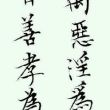 萬惡淫為
百善孝為